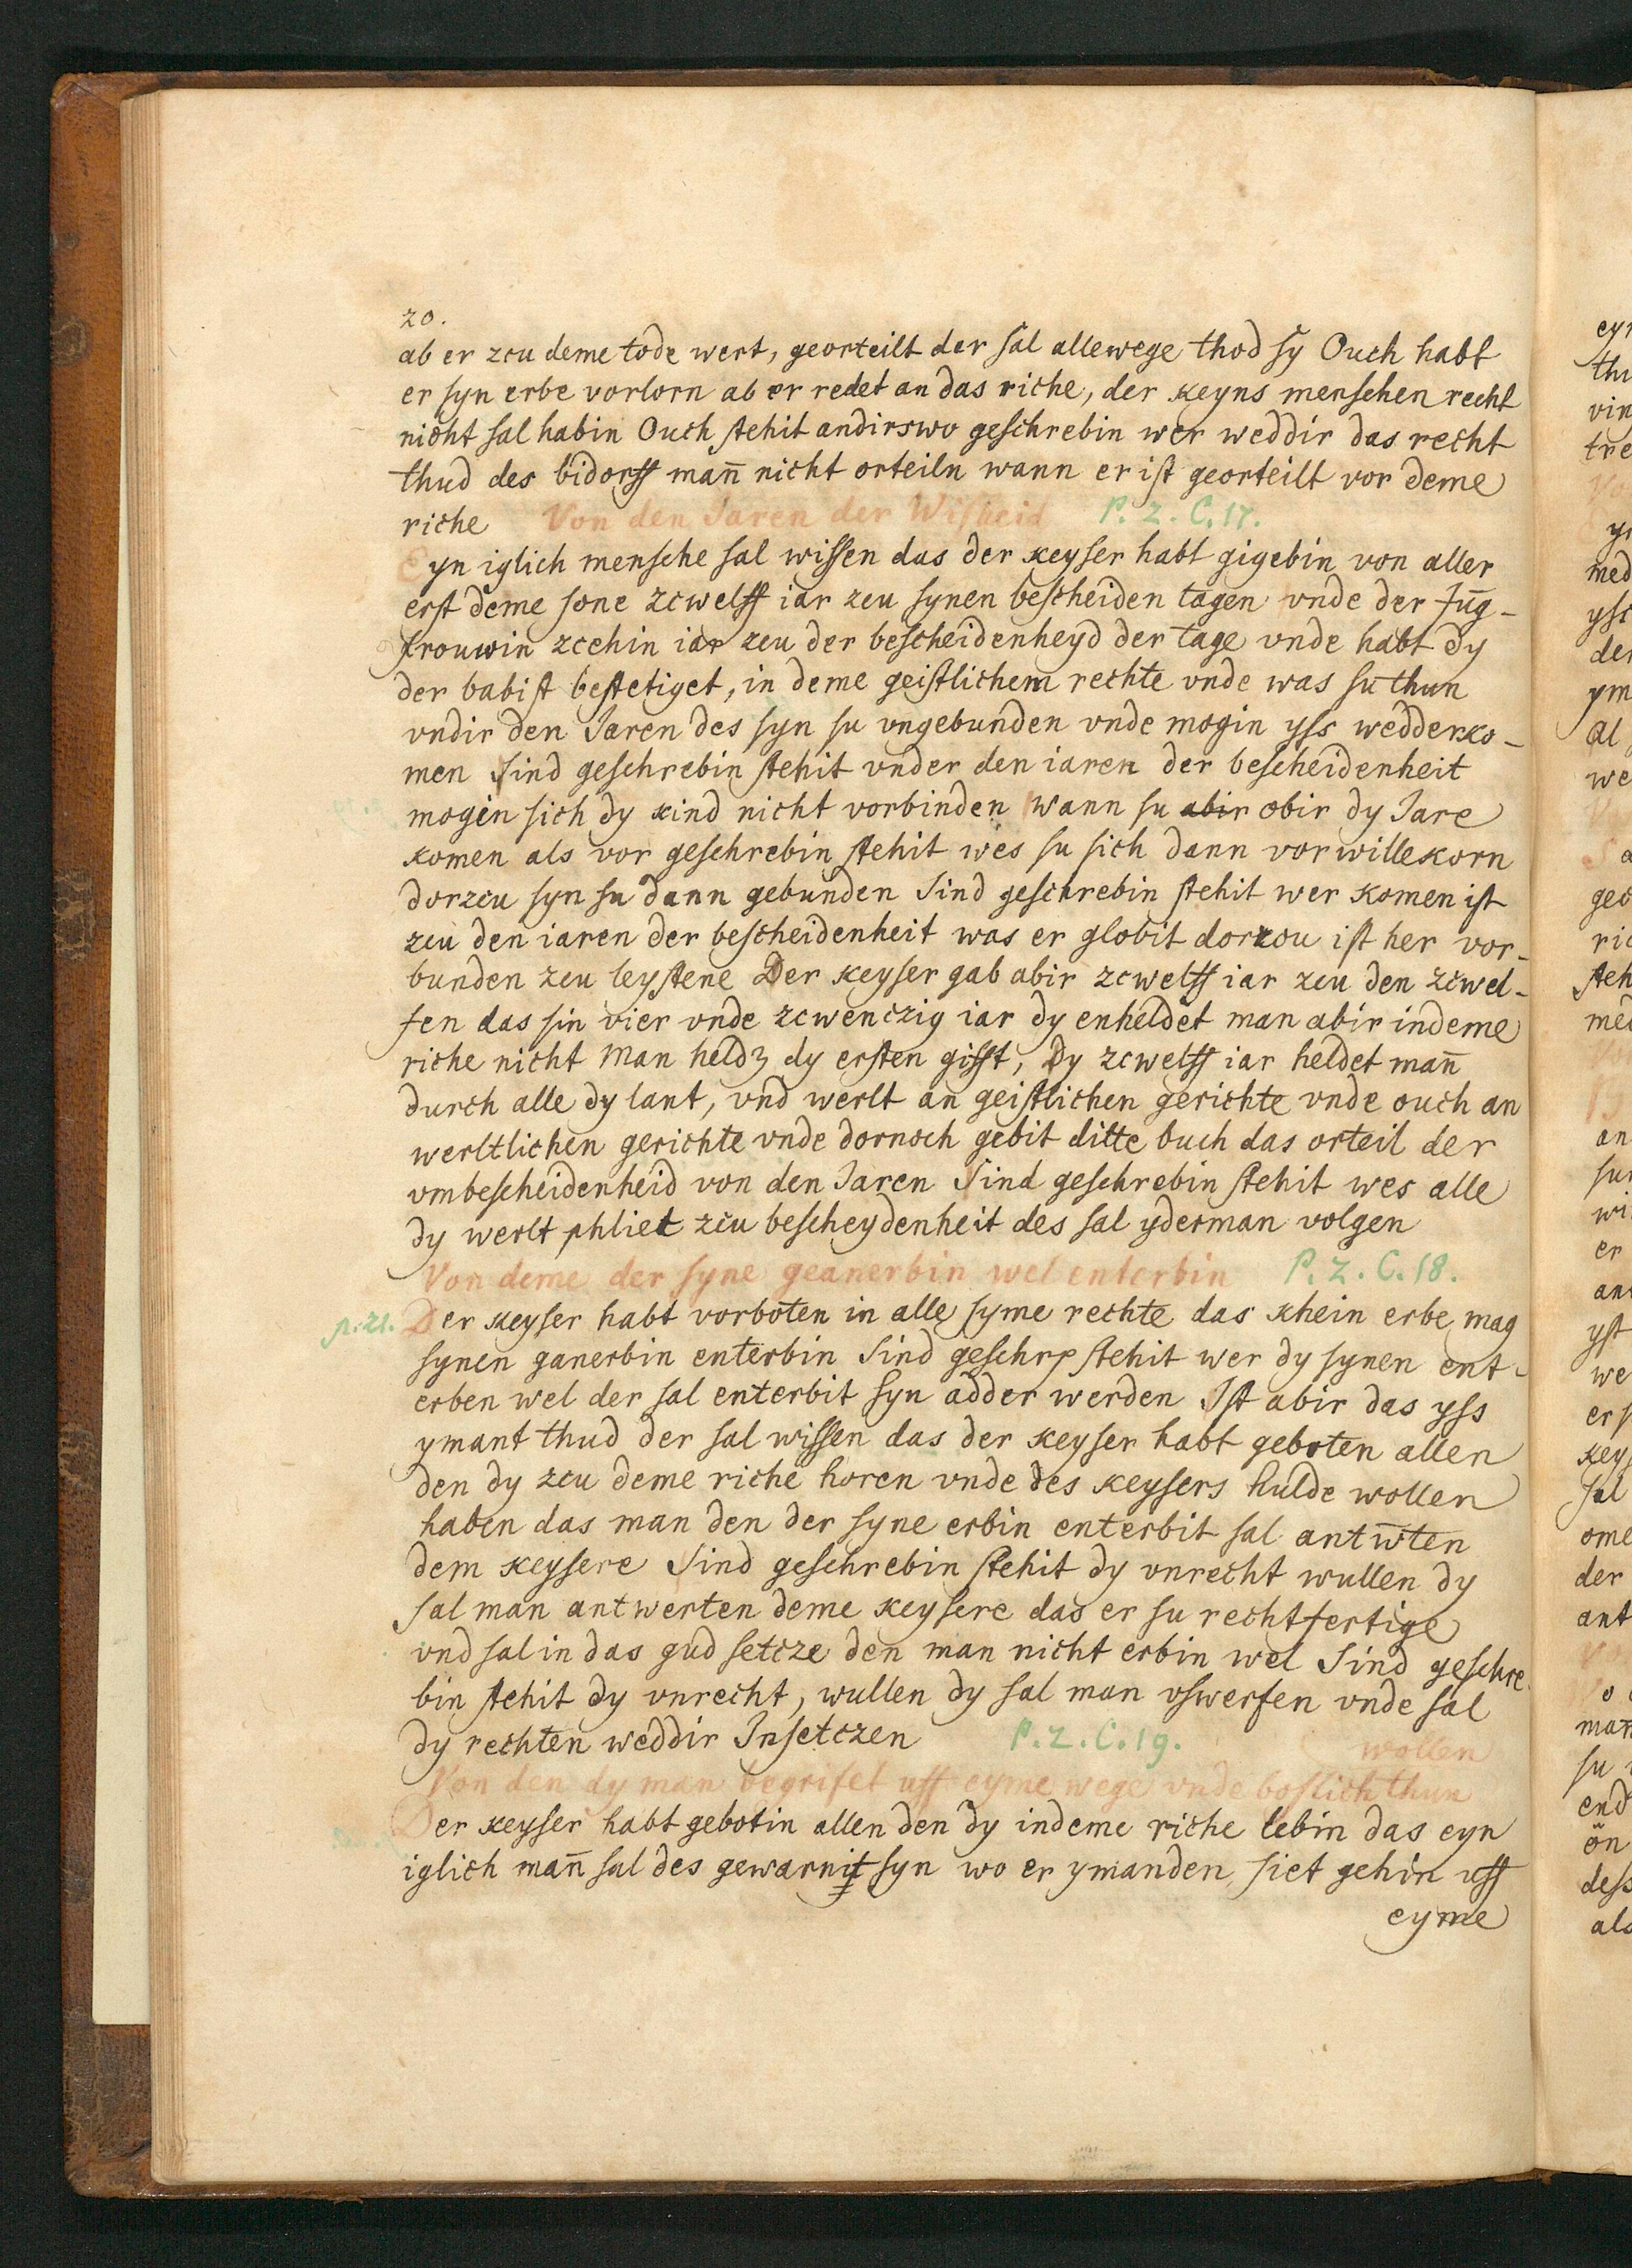 20.
ab er zcu deme tode wert, georteilt der sal allewege thod sy Ouch habt
er syn erbe vorlorn ab er redet an das riche, der keyns menschen recht
nicht sal habin Ouch stehit andirswo geschrebin wer weddir das recht
thud des bidorff man̄ nicht orteiln wann er ist georteilt vor deme
riche Von den Jaren der Wisheid P. 2. C. 17.
Eyn iglich mensche sal wissen das der keyser habt gigebin von aller
erst deme sone zcwelff iar zcu synen bescheiden tagen vnde der Jūg-
frouwin zcehin iar zcu der bescheidenheyd der tage vnde habt dy
der babist bestetiget, in deme geistlichem rechte vnde was su thun
vndir den Jaren des syn su vngebunden vnde mogin yss wedderko-
men Sind geschrebin stehit vnder den iaren der bescheidenheit
mogin sich dy kind nicht vorbinden wann su abir obir dy Jare
komen als vor geschrebin stehit wes su sich dann vorwillekorn
dorzcu syn su dann gebunden Sind geschrebin stehit wer komen ist
zcu den iaren der bescheidenheit was er globit dorzcu ist her vor-
bunden zcu leystene Der keyser gab abir zcwelff iar zcu den zcwel-
fen das sin vier vnde zcwenczig iar dy enheldet man abir indeme
riche nicht Man heldꝫ dy ersten gifft, Dy zcwelff iar heldet man̄
durch alle dy lant, vnd werlt an geistlichen gerichte vnde ouch an
werltlichen gerichte vnde dornoch gebit ditte buch das orteil der
vmbescheidenheid von den Jaren Sind geschrebin stehit wes alle
dy werlt phliet zcu bescheydenheit des sal yderman volgen
Von deme der syne geanerbin wel enterbin P. 2. C. 18.
p. 21. Der keyser habt vorboten in alle syme rechte das khein erbe mag
synen ganerbin enterbin Sind geschrp stehit wer dy synen ent-
erben wel der sal enterbit syn adder werden Ist abir das yss
ymant thud der sal wissen das der keyser habt geboten allen
den dy zcu deme riche horen vnde des keysers hulde wollen
haben das man den der syne erbin enterbit sal antw̄ten
dem keysere Sind geschrebin stehit dy vnrecht wullen dy
sal man antwerten deme keysere das er su rechtfertige
vnd sal in das gud setcze den man nicht erbin wel Sind geschre-
bin stehit dy vnrecht, wullen dy sal man vswerfen vnde sal
dy rechten weddir Insetczen P. 2. C. 19. wollen
Von den dy man begrifet uff eyme wege vnde boslich thun
Der keyser habt gebotin allen den dy indeme riche lebin das eyn
iglich man̄ sal des gewarnit syn wo er ymanden siet gehin uff
eyme